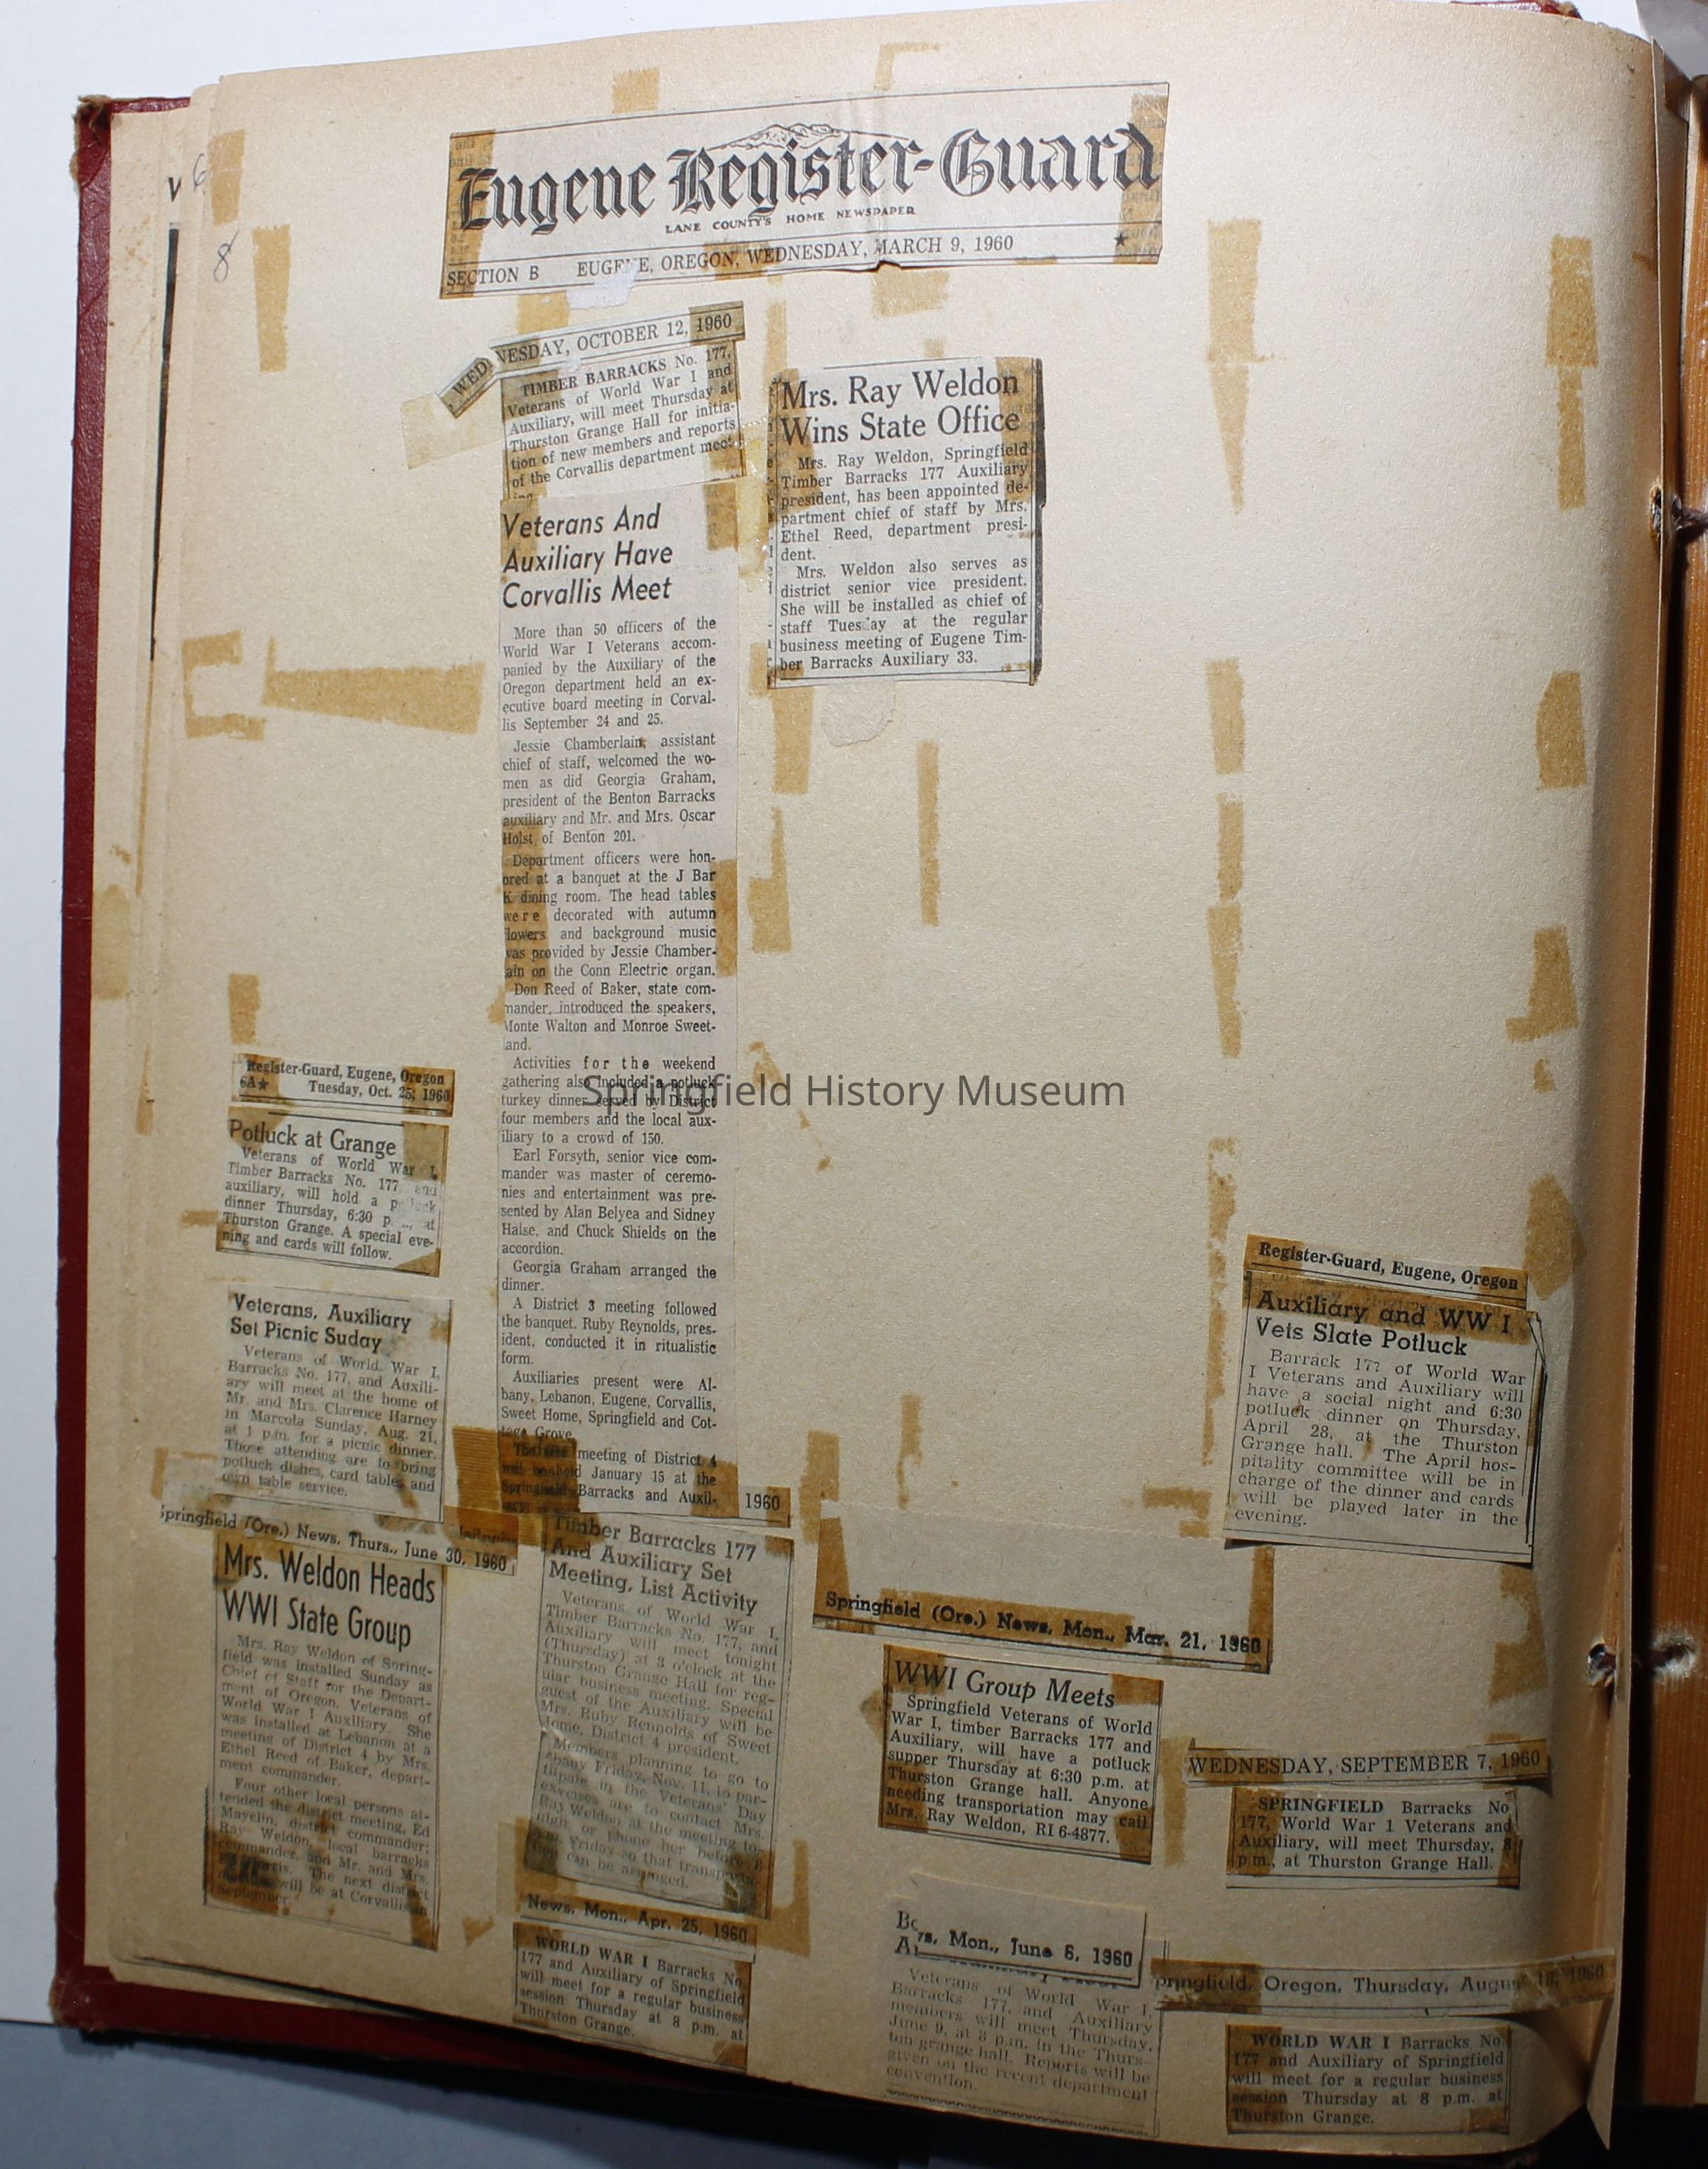 Eugene Register-Guard
LANE COUNTY'S HOME NEWSPAPER
SECTION B EUGENE, OREGON, WEDNESDAY, MARCH 9, 1960
8
WEDNESDAY, OCTOBER 12, 1960
TIMBER BARRACKS No. 177,
Veterans of World War I and
Auxiliary, will meet Thursday at
Thurston Grange Hall for initia-
tion of new members and reports
of the Corvallis department meet-
ing.
Veterans And
Auxiliary Have
Corvallis Meet
More than 50 officers of the
World War I Veterans accom-
panied by the Auxiliary of the
Oregon department held an ex-
ecutive board meeting in Corval-
lis September 24 and 25.
Jessie Chamberlain, assistant
chief of staff, welcomed the wo-
men as did Georgia Graham,
president of the Benton Barracks
auxiliary and Mr. and Mrs. Oscar
Holst, of Benton 201.
Department officers were hon-
ored at a banquet at the J Bar
K dining room. The head tables
were decorated with autumn
lowers and background music
was provided by Jessie Chamber-
ain on the Conn Electric organ.
Don Reed of Baker, state com-
mander, introduced the speakers,
Monte Walton and Monroe Sweet-
land.
Activities for the weekend
gathering also included a potluck
turkey dinner served by District
four members and the local aux-
iliary to a crowd of 150.
Earl Forsyth, senior vice com-
mander was master of ceremo-
nies and entertainment was pre-
sented by Alan Belyea and Sidney
Halse, and Chuck Shields on the
accordion.
Georgia Graham arranged the
dinner.
A District 3 meeting followed
the banquet. Ruby Reynolds, pres-
ident, conducted it in ritualistic
form.
Auxiliaries present were Al-
bany, Lebanon, Eugene, Corvallis,
Sweet Home, Springfield and Cot-
tage Grove.
meeting of District 4
will be held January 15 at the
Springfield Barracks and Auxil-
Mrs. Ray Weldon
Wins State Office
Mrs. Ray Weldon, Springfield
Timber Barracks 177 Auxiliary
president, has been appointed de-
partment chief of staff by Mrs.
Ethel Reed, department presi-
dent.
Mrs. Weldon also serves as
district senior vice president.
She will be installed as chief of
staff Tuesday at the regular
business meeting of Eugene Tim-
ber Barracks Auxiliary 33.
Springfield History Museum
Register-Guard, Eugene, Oregon
6A★ Tuesday, Oct. 25, 1960
Potluck at Grange
Veterans of World War I,
Timber Barracks No. 177 and
auxiliary, will hold a potluck
dinner Thursday, 6:30 p. at
Thurston Grange. A special eve-
ning and cards will follow.
Veterans, Auxiliary
Set Picnic Suday
Veterans of World War I,
Barracks No. 177, and Auxili-
ary will meet at the home of
Mr. and Mrs. Clarence Harney
in Marcola Sunday, Aug. 21,
at 1 p.m. for a picnic dinner.
Those attending are to bring
potluck dishes, card tables and
own table service.
Springfield (Ore.) News, Thurs., June 30, 1960
Mrs. Weldon Heads
WWI State Group
Mrs. Ray Weldon of Spring-
field was installed Sunday as
Chief of Staff for the Depart-
ment of Oregon, Veterans of
World War I Auxiliary. She
was installed at Lebanon at a
meeting of District 4 by Mrs.
Ethel Reed of Baker, depart-
ment commander.
Four other local persons at-
tended the district meeting, Ed
Mayelin, district commander;
Ray Weldon, local barracks
commander, and Mr. and Mrs.
The next district
will be at Corvallis in
September.
1960
Timber Barracks 177
And Auxiliary Set
Meeting, List Activity
Veterans of World War I,
Timber Barracks No. 177, and
Auxiliary will meet tonight
(Thursday) at 8 o'clock at the
Thurston Grange Hall for reg-
ular business meeting. Special
guest of the Auxiliary will be
Mrs. Ruby Rennolds of Sweet
Home, District 4 president.
Members planning to go to
Albany Friday, Nov. 11, to par-
titpate in the Veterans' Day
exercises are to contact Mrs.
Ray Weldon at the meeting to-
nigh, or phone her before 8
a.m. Friday so that transporta-
tion can be arranged.
News, Mon., Apr. 25, 1960
WORLD WAR I Barracks No.
177 and Auxiliary of Springfield
will meet for a regular business
session Thursday at 8 p.m. at
Thurston Grange.
Register-Guard, Eugene, Oregon
Auxiliary and WW I
Vets Slate Potluck
Barrack 177 of World War
I Veterans and Auxiliary will
have a social night and 6:30
potluck dinner on Thursday,
April 28, at the Thurston
Grange hall. The April hos-
pitality committee will be in
charge of the dinner and cards
will be played later in the
evening.
Springfield (Ore.) News, Mon., Mar. 21, 1960
WWI Group Meets
Springfield Veterans of World
War I, timber Barracks 177 and
Auxiliary, will have a potluck
supper Thursday at 6:30 p.m. at
Thurston Grange hall. Anyone
needing transportation may call
Mrs. Ray Weldon, RI 6-4877.
WEDNESDAY, SEPTEMBER 7, 1960
SPRINGFIELD Barracks No
177, World War 1 Veterans and
Auxiliary, will meet Thursday, 8
p.m., at Thurston Grange Hall.
Mon., June 6, 1960
Veterans of World War I,
Barracks 177, and Auxiliary
members will meet Thursday,
June 9, at 8 p.m. in the Thurs-
ton grange hall. Reports will be
given on the recent department
convention.
pringfield, Oregon, Thursday, August 18, 1960
WORLD WAR I Barracks No.
177 and Auxiliary of Springfield
will meet for a regular business
session Thursday at 8 p.m. at
Thurston Grange.